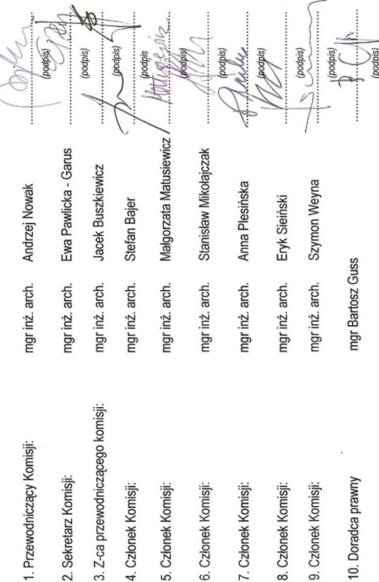 1. Przewodniczący Komisji: mgr inż. arch. Andrzej Nowak
(podpis)
2. Sekretarz Komisji: mgr inż. arch. Ewa Pawlicka - Garus
(podpis)
3. Z-ca przewodniczącego komisji: mgr inż. arch. Jacek Buszkiewicz
(podpis)
4. Członek Komisji: mgr inż. arch. Stefan Bajer
(podpis)
5. Członek Komisji: mgr inż. arch. Małgorzata Matusiewicz
(podpis)
6. Członek Komisji: mgr inż. arch. Stanisław Mikołajczak
(podpis)
7. Członek Komisji: mgr inż. arch. Anna Plesińska
(podpis)
8. Członek Komisji: mgr inż. arch. Eryk Sieiński
(podpis)
9. Członek Komisji: mgr inż. arch. Szymon Weyna
(podpis)
10. Doradca prawny mgr Bartosz Guss
(podpis)